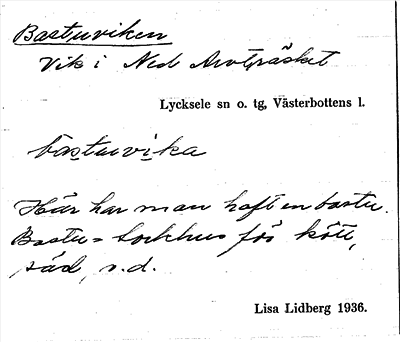 Bastuviken
Vik i Ned Arvträsket
Lycksele sn o. tg, Västerbottens l.
bastuvika
Här har man haft en bastu.
Bastu = torkhus för kött,
säd, o.d.
Lisa Lidberg 1936.